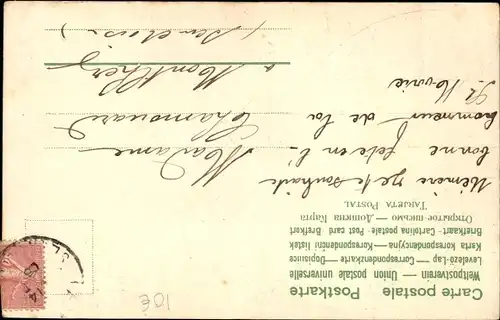 Carte postale Postkarte
Weltpostverein — Union postale universelle
Levelező-Lap — Correspondenzkarte — Dopisnice
Karta korespondencyjna — Korespondenční lístek
Briefkaart - Cartolina postale - Post card - Brefkort
Открытое письмо — Дописна Карта
TARJETA POSTAL
Mémère je te souhaite
bonne fête en l'
honneur de la
St Marie
Madame
Chamouard
à Monthlery
10€